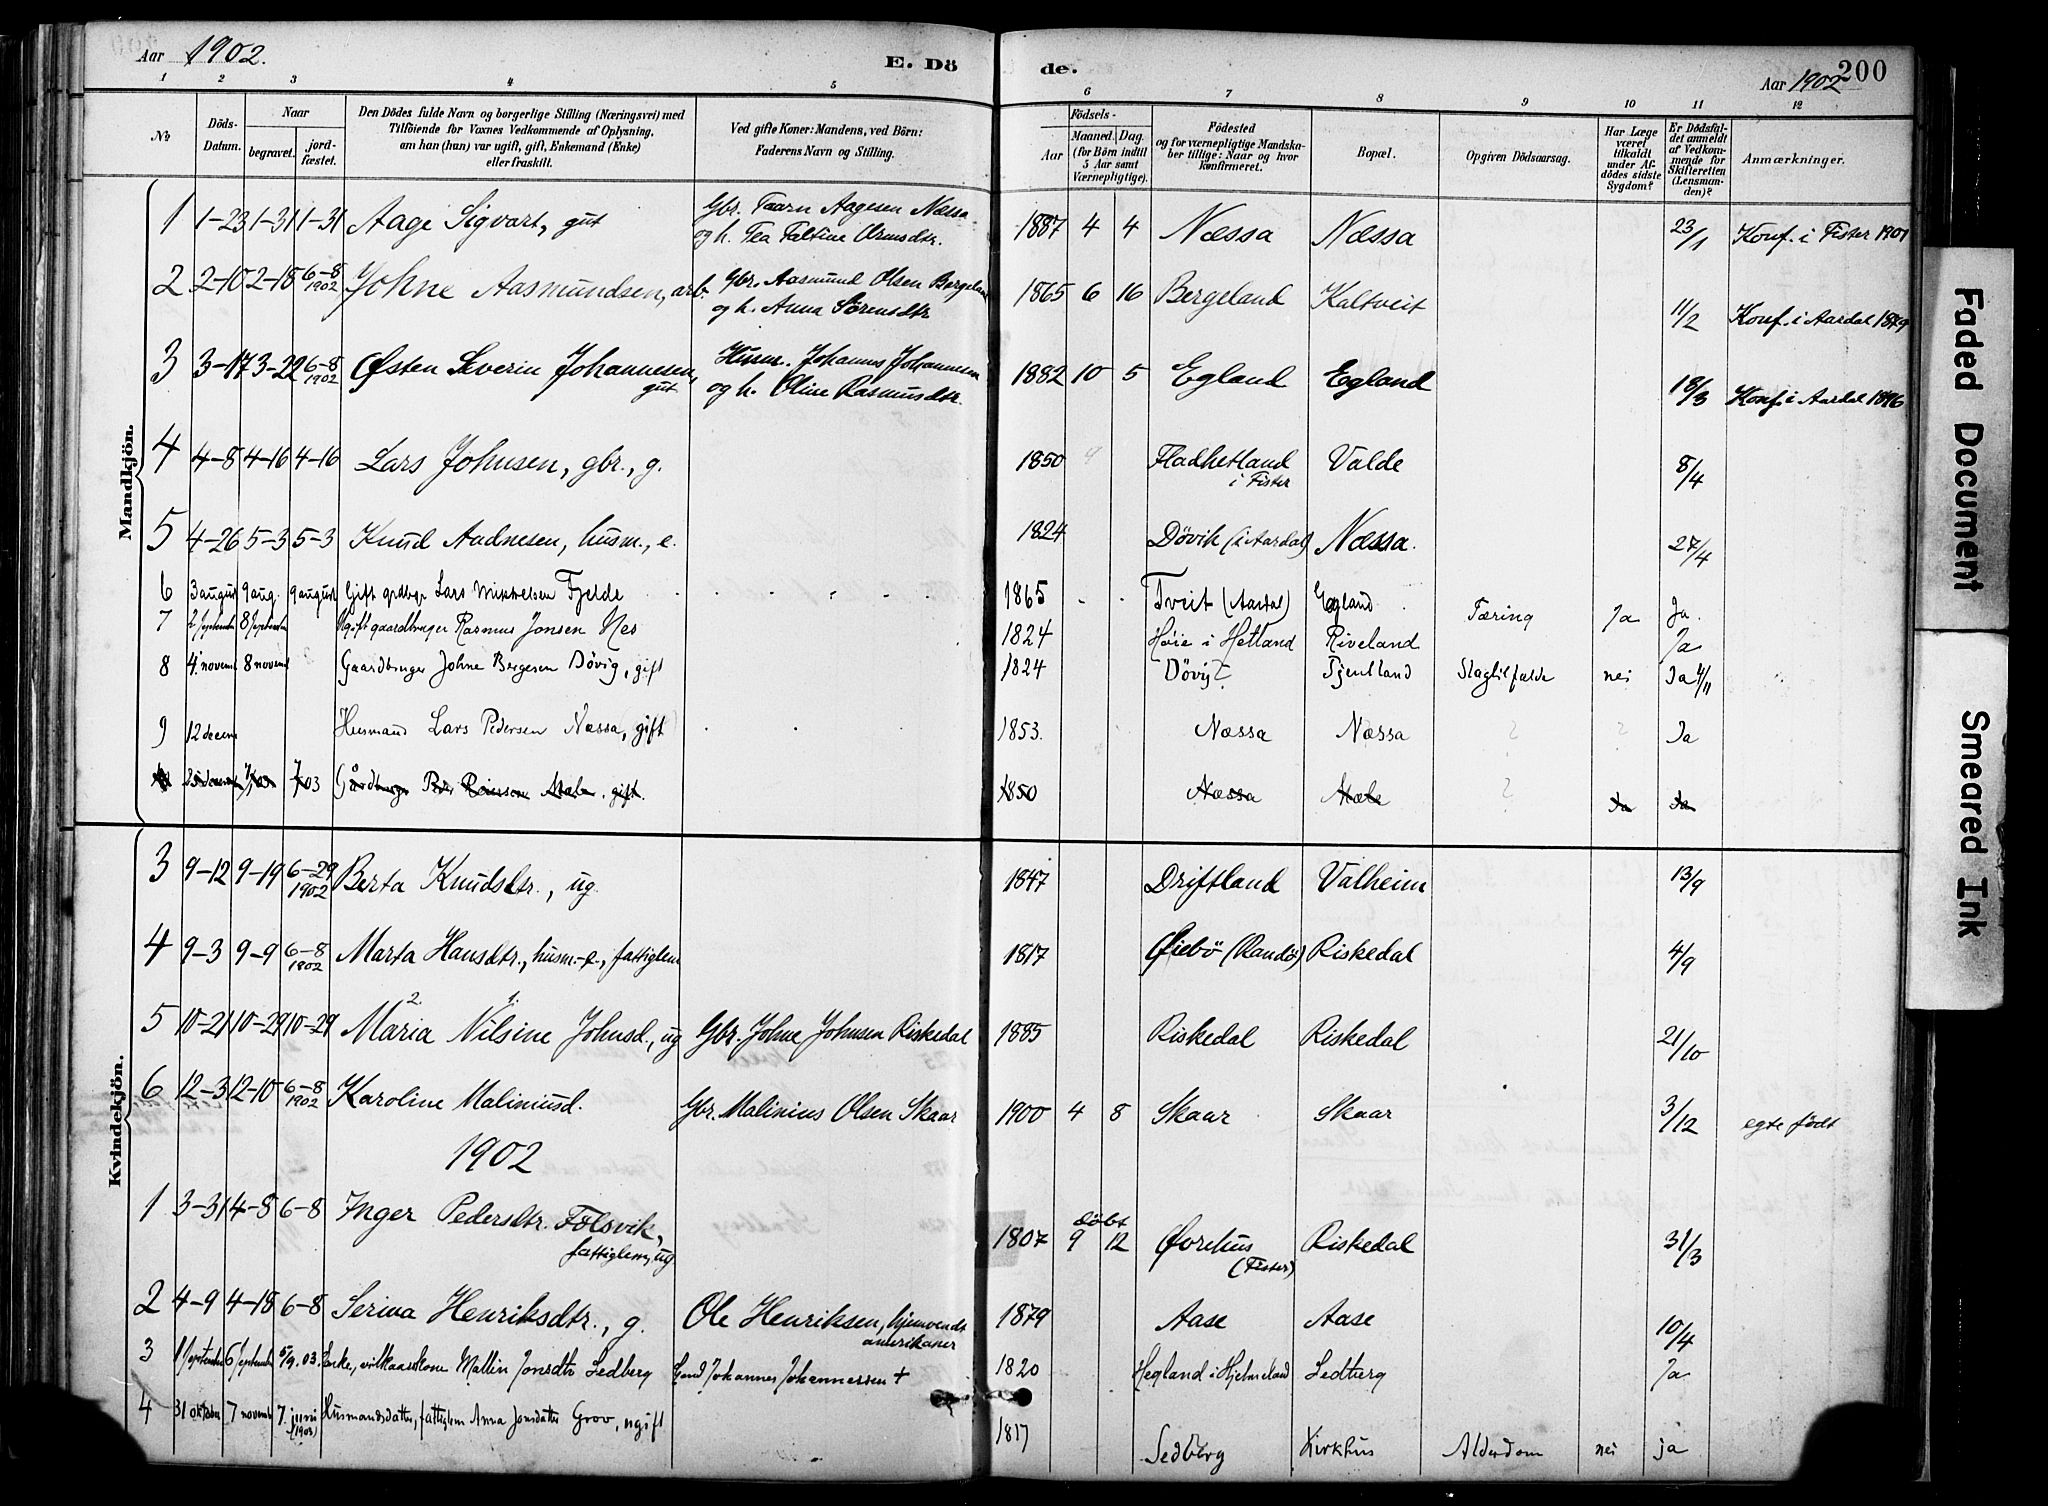 Aar 1902.
E. Dö de.
Aar 1902 200
1 2 3 4 5 6 7 8 9 10 11 12
No
Döds-Datum.
Naar
begravet.
jord-fæstet.
Den Dödes fulde Navn og borgerlige Stilling (Næringsvei) med
Tilföiende for Voxnes Vedkommende af Oplysning,
om han (hun) var ugift, gift, Enkemand (Enke)
eller fraskilt.
Ved gifte Koner: Mandens, ved Börn:
Faderens Navn og Stilling.
Födsels-
Aar
Maaned. Dag.
(for Börn indtil
5 Aar samt
Værnepligtige).
Födested
og for værnepligtige Mandska-
ber tillige: Naar og hvor
konfirmeret.
Bopæl.
Opgiven Dödsaarsag.
Har Læge
været
tilkaldt
under Af-
dödes sidste
Sygdom?
Er Dödsfal-
det anmeldt
af Vedkom-
mende for
Skifteretten
(Lensman-
den)?
Anmærkninger.
Mandkjön.
1 1-23 1-31 1-31 Aage Sigvart, gut Gbr. Taarn Aagesen Næssa og h. Tea Taltine Ormsdtr. 1887 4 4 Næssa Næssa 23/1 Konf. i Fister 1901
2 2-10 2-18 6-8 1902 Johne Aasmundsen, arb. Gbr. Aasmund Olsen Bergeland og h. Anna Sörensdtr 1865 6 16 Bergeland Kaltveit 11/2 Konf. i Aardal 1879
3 3-17 3-22 6-8 1902 Østen Severin Johannesen, gut Husm. Johannes Johannesen og h. Oline Rasmusdtr. 1882 10 5 Egland Egland 18/3 Konf. i Aardal 1896
4 4-8 4-16 4-16 Lars Johnsen, gbr., g. 1850 9 Fladhetland i Fister Valde 8/4
5 4-26 5-3 5-3 Knud Aadnesen, husm., e. 1824 Dövik (i Aardal) Næssa. 27/4
6 3 august 9 aug. 9 august Gift grdbgr Lars Mikkelsen Fjelde 1865 Tveit (Aardal) Egland Tæring Ja Ja.
7 2 September 8 September Ugift gaardbruger Rasmus Jonsen Nes 1824 Høie i Hetland Riveland Ja
8 4 novemb 8 novemb Gaardbruger Johne Bergesen Døvig, gift 1824 Døvig? Tjentland Slagtilfælde nei Ja 4/11
9 12 decem Husmand Lars Pedersen Næssa, gift 1853. Næssa Næssa ? ? Ja
1850 Næssa Mæle ? Ja Ja
Kvindekjön.
3 9-12 9-19 6-29 1902 Berta Knudsdtr., ug. 1847 Driftland Valheim 13/9
4 9-3 9-9 6-8 1902 Marta Hansdtr., husm.-e., fattiglem 1817 Øiebö (Randö) Riskedal 4/9
5 10-21 10-29 10-29 Maria 2. Nilsine 1. Johnsd., ug Gbr. Johne Johnsen Riskedal 1885 Riskedal Riskedal 21/10
6 12-3 12-10 6-8 1902 Karoline Maliniusd. Gbr. Malinius Olsen Skaar 1900 4 8 Skaar Skaar 3/12 egte födt
1902
1 3-31 4-8 6-8 Inger Pedersdtr. Folsvik, fattiglem, ug 1807 döbt 9 12 Øvrehus (Fister) Riskedal 31/3
2 4-9 4-18 6-8 Serina Henriksdtr., g. Ole Henriksen, hjemvendt amerikaner 1879 Aase Aase 10/4
3 1 September 6 September 5/9.03. Enke, vilkaarskone Mallin Jonsdtr Sedberg Gmd Johannes Johannessen + 1820 Hegland i Hjelmeland Sedberg Ja
4 31 oktober 7 novemb 7. juni (1903) Husmandsdatter, fattiglem Anna Jonsdatter Grov, ugift 1817 Sedberg Kirkhus Alderdom nei ja
Faded Document
Smeared Ink